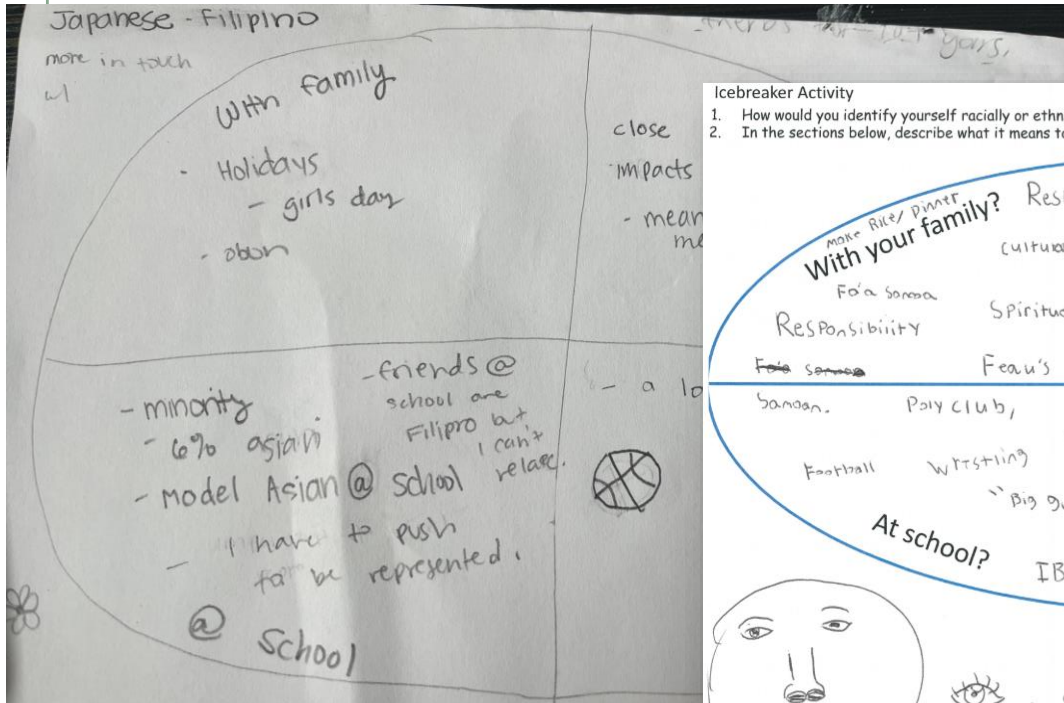 Japanese - Filipino
more in touch
w/
With family
· Holidays
- girls day
- obon
close
impacts
- mean
me
- minority
- 6% asian
- Model Asian @ school
- I have to push
to be represented.
- friends @
school are
Filipro but
I can't
relate.
@ School
- a lo
years.
Icebreaker Activity
1. How would you identify yourself racially or ethn
2. In the sections below, describe what it means to
Make Rice/ Dinner
With your family?
Fa'a Samoa
Responsibility
Res
Cultura
Spiritua
Feau's
Samoan.
Poly club,
Football
Wrestling
"Big gu
At school?
IB